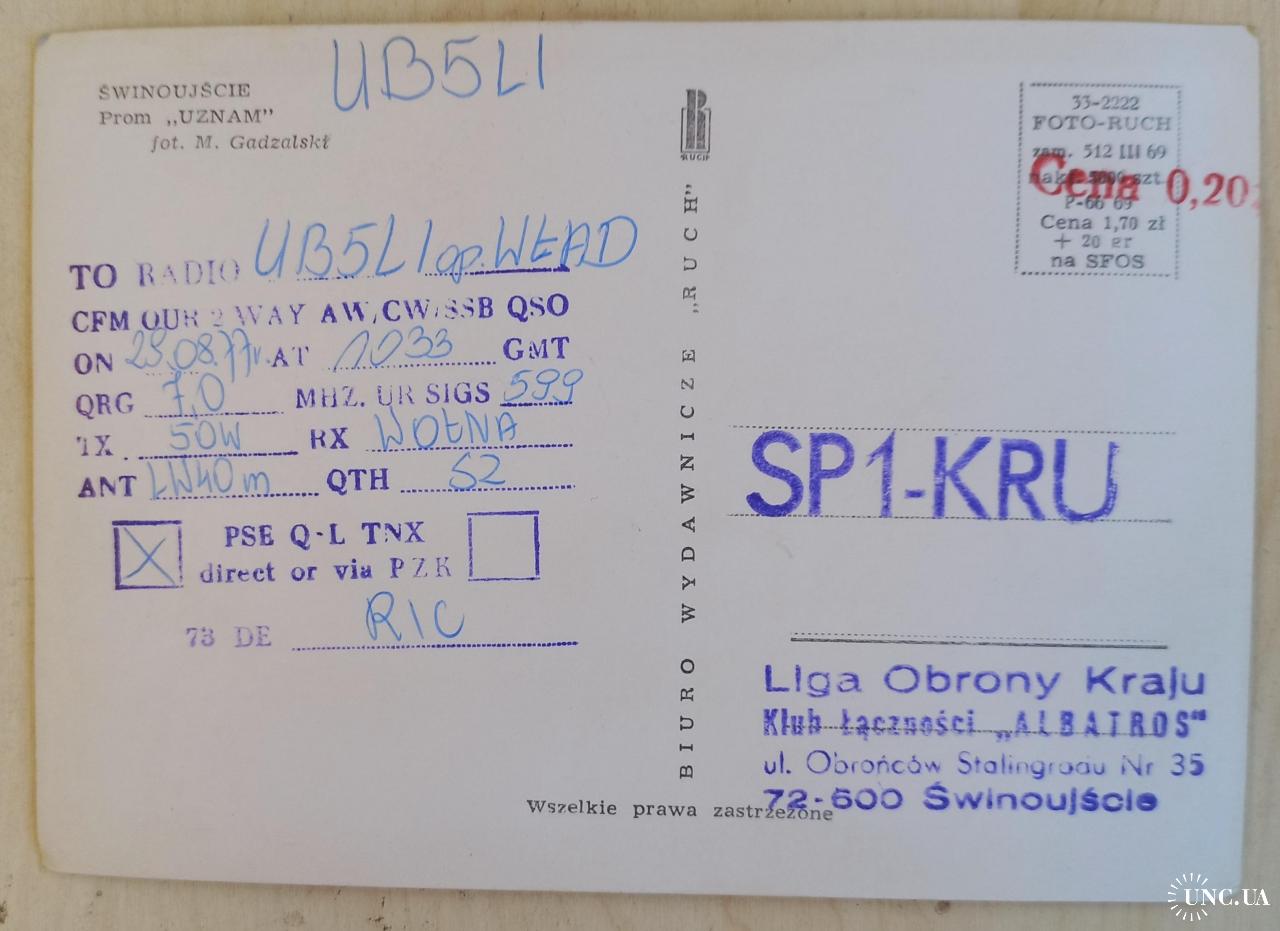 UB5LI
ŚWINOUJŚCIE
Prom „UZNAM”
fot. M. Gadzalski
TO RADIO UB5LI op. WŁAD
CFM OUR 2 WAY AW/CW/SSB QSO
ON 29.08.77r. AT 1033 GMT
QRG 7,0 MHZ. UR SIGS 599
TX 50W RX WOŁNA
ANT LW40m QTH S2
X PSE Q-L TNX
direct or via PZK
73 DE RIC
RUCH
BIURO WYDAWNICZE „RUCH”
Wszelkie prawa zastrzeżone
33-2222
FOTO-RUCH
zam. 512 III 69
nakł. 5000 szt.
P-66 69
Cena 1,70 zł
+ 20 gr
na SFOS
Cena 0,20
SP1-KRU
Liga Obrony Kraju
Klub Łączności „ALBATROS”
ul. Obrońców Stalingradu Nr 35
72-600 Świnoujście
UNC.UA